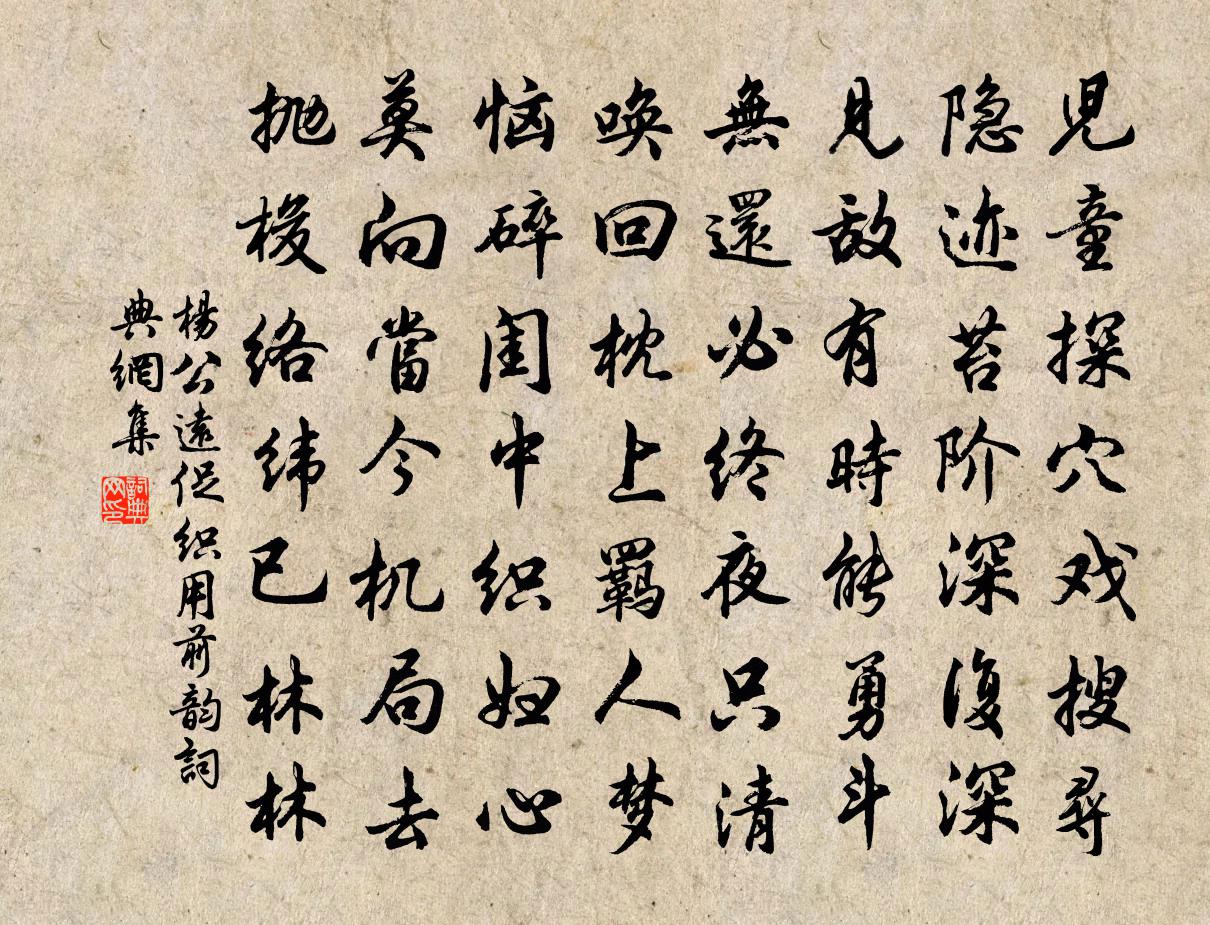 兒童探穴戏搜尋
隐迹苔阶深復深
見敌有時能勇斗
無還必终夜只清
唤回枕上羈人梦
恼碎闺中织妇心
莫向當今机局去
抛梭络纬已林林
楊公遠促织用前韵詞
典網集
詞典网印